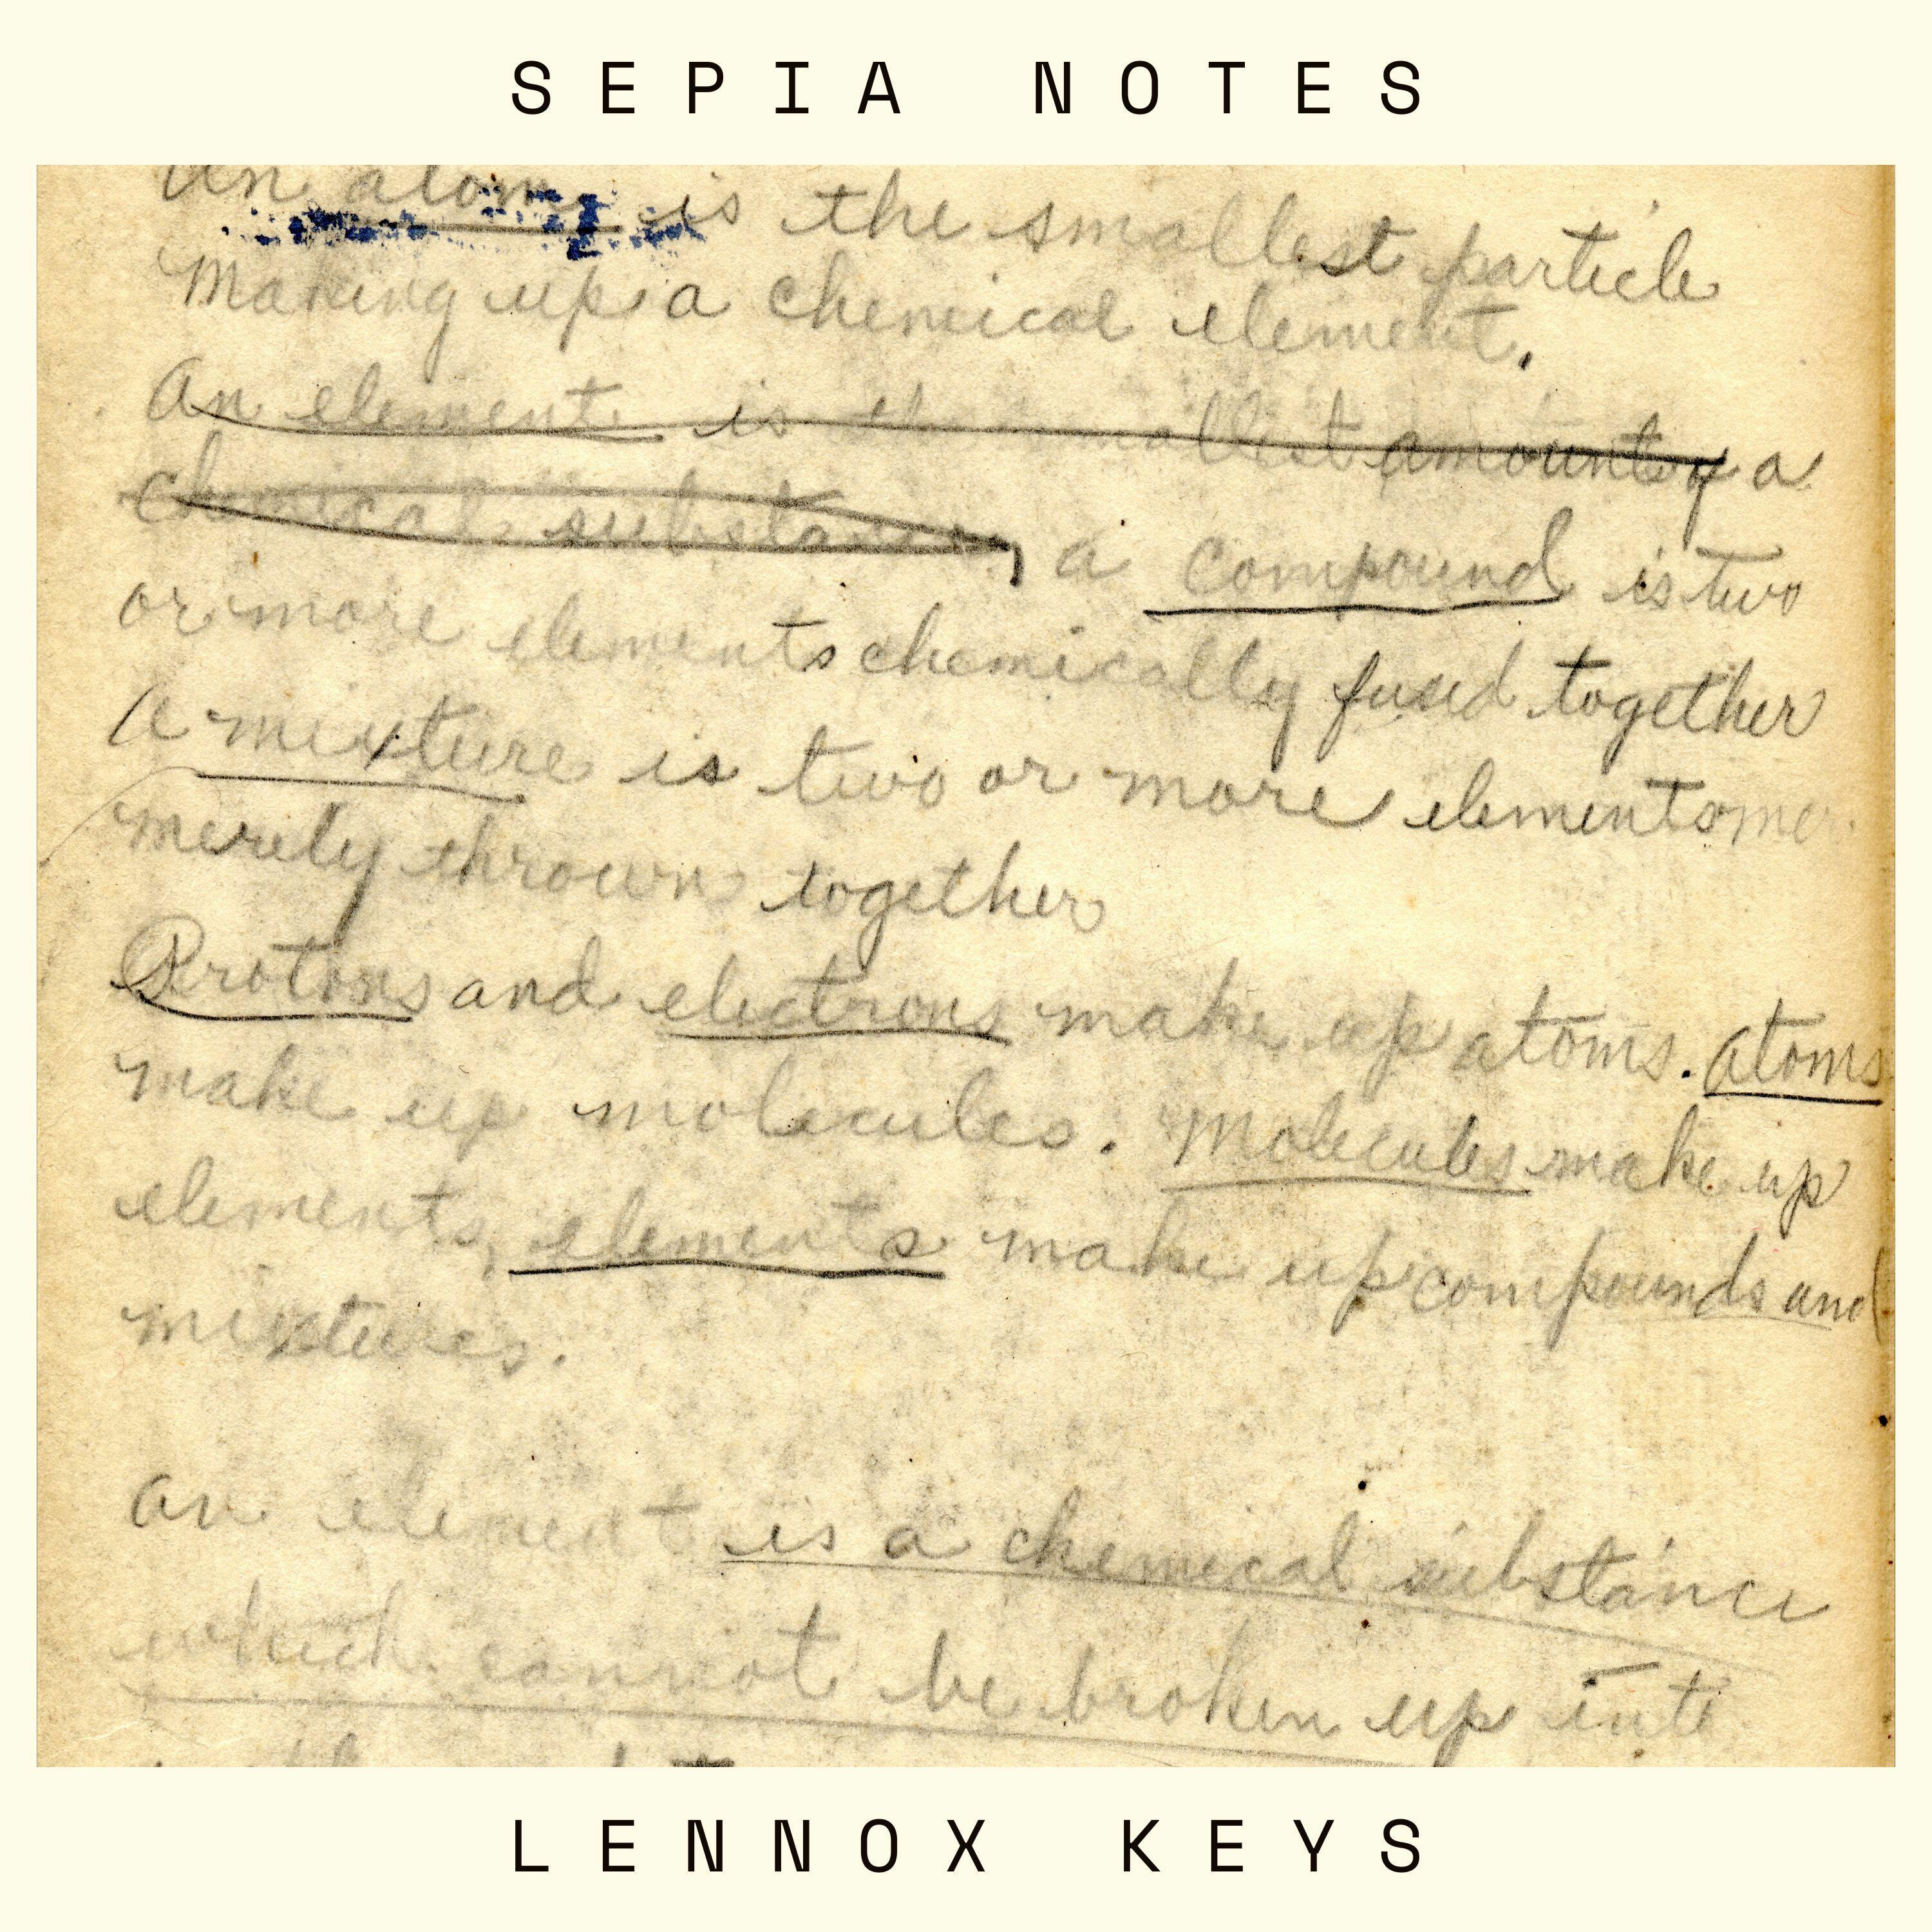 SEPIA NOTES
An atom is the smallest particle
Making up a chemical element.
An element is the smallest amount of a
chemical substance, a compound is two
or more elements chemically fused together
A mixture is two or more elements mer
merely thrown together
Protons and electrons make up atoms. Atoms
make up molecules. Molecules make up
elements, elements make up compounds and
mixtures.
an element is a chemical substance
which cannot be broken up into
LENNOX KEYS